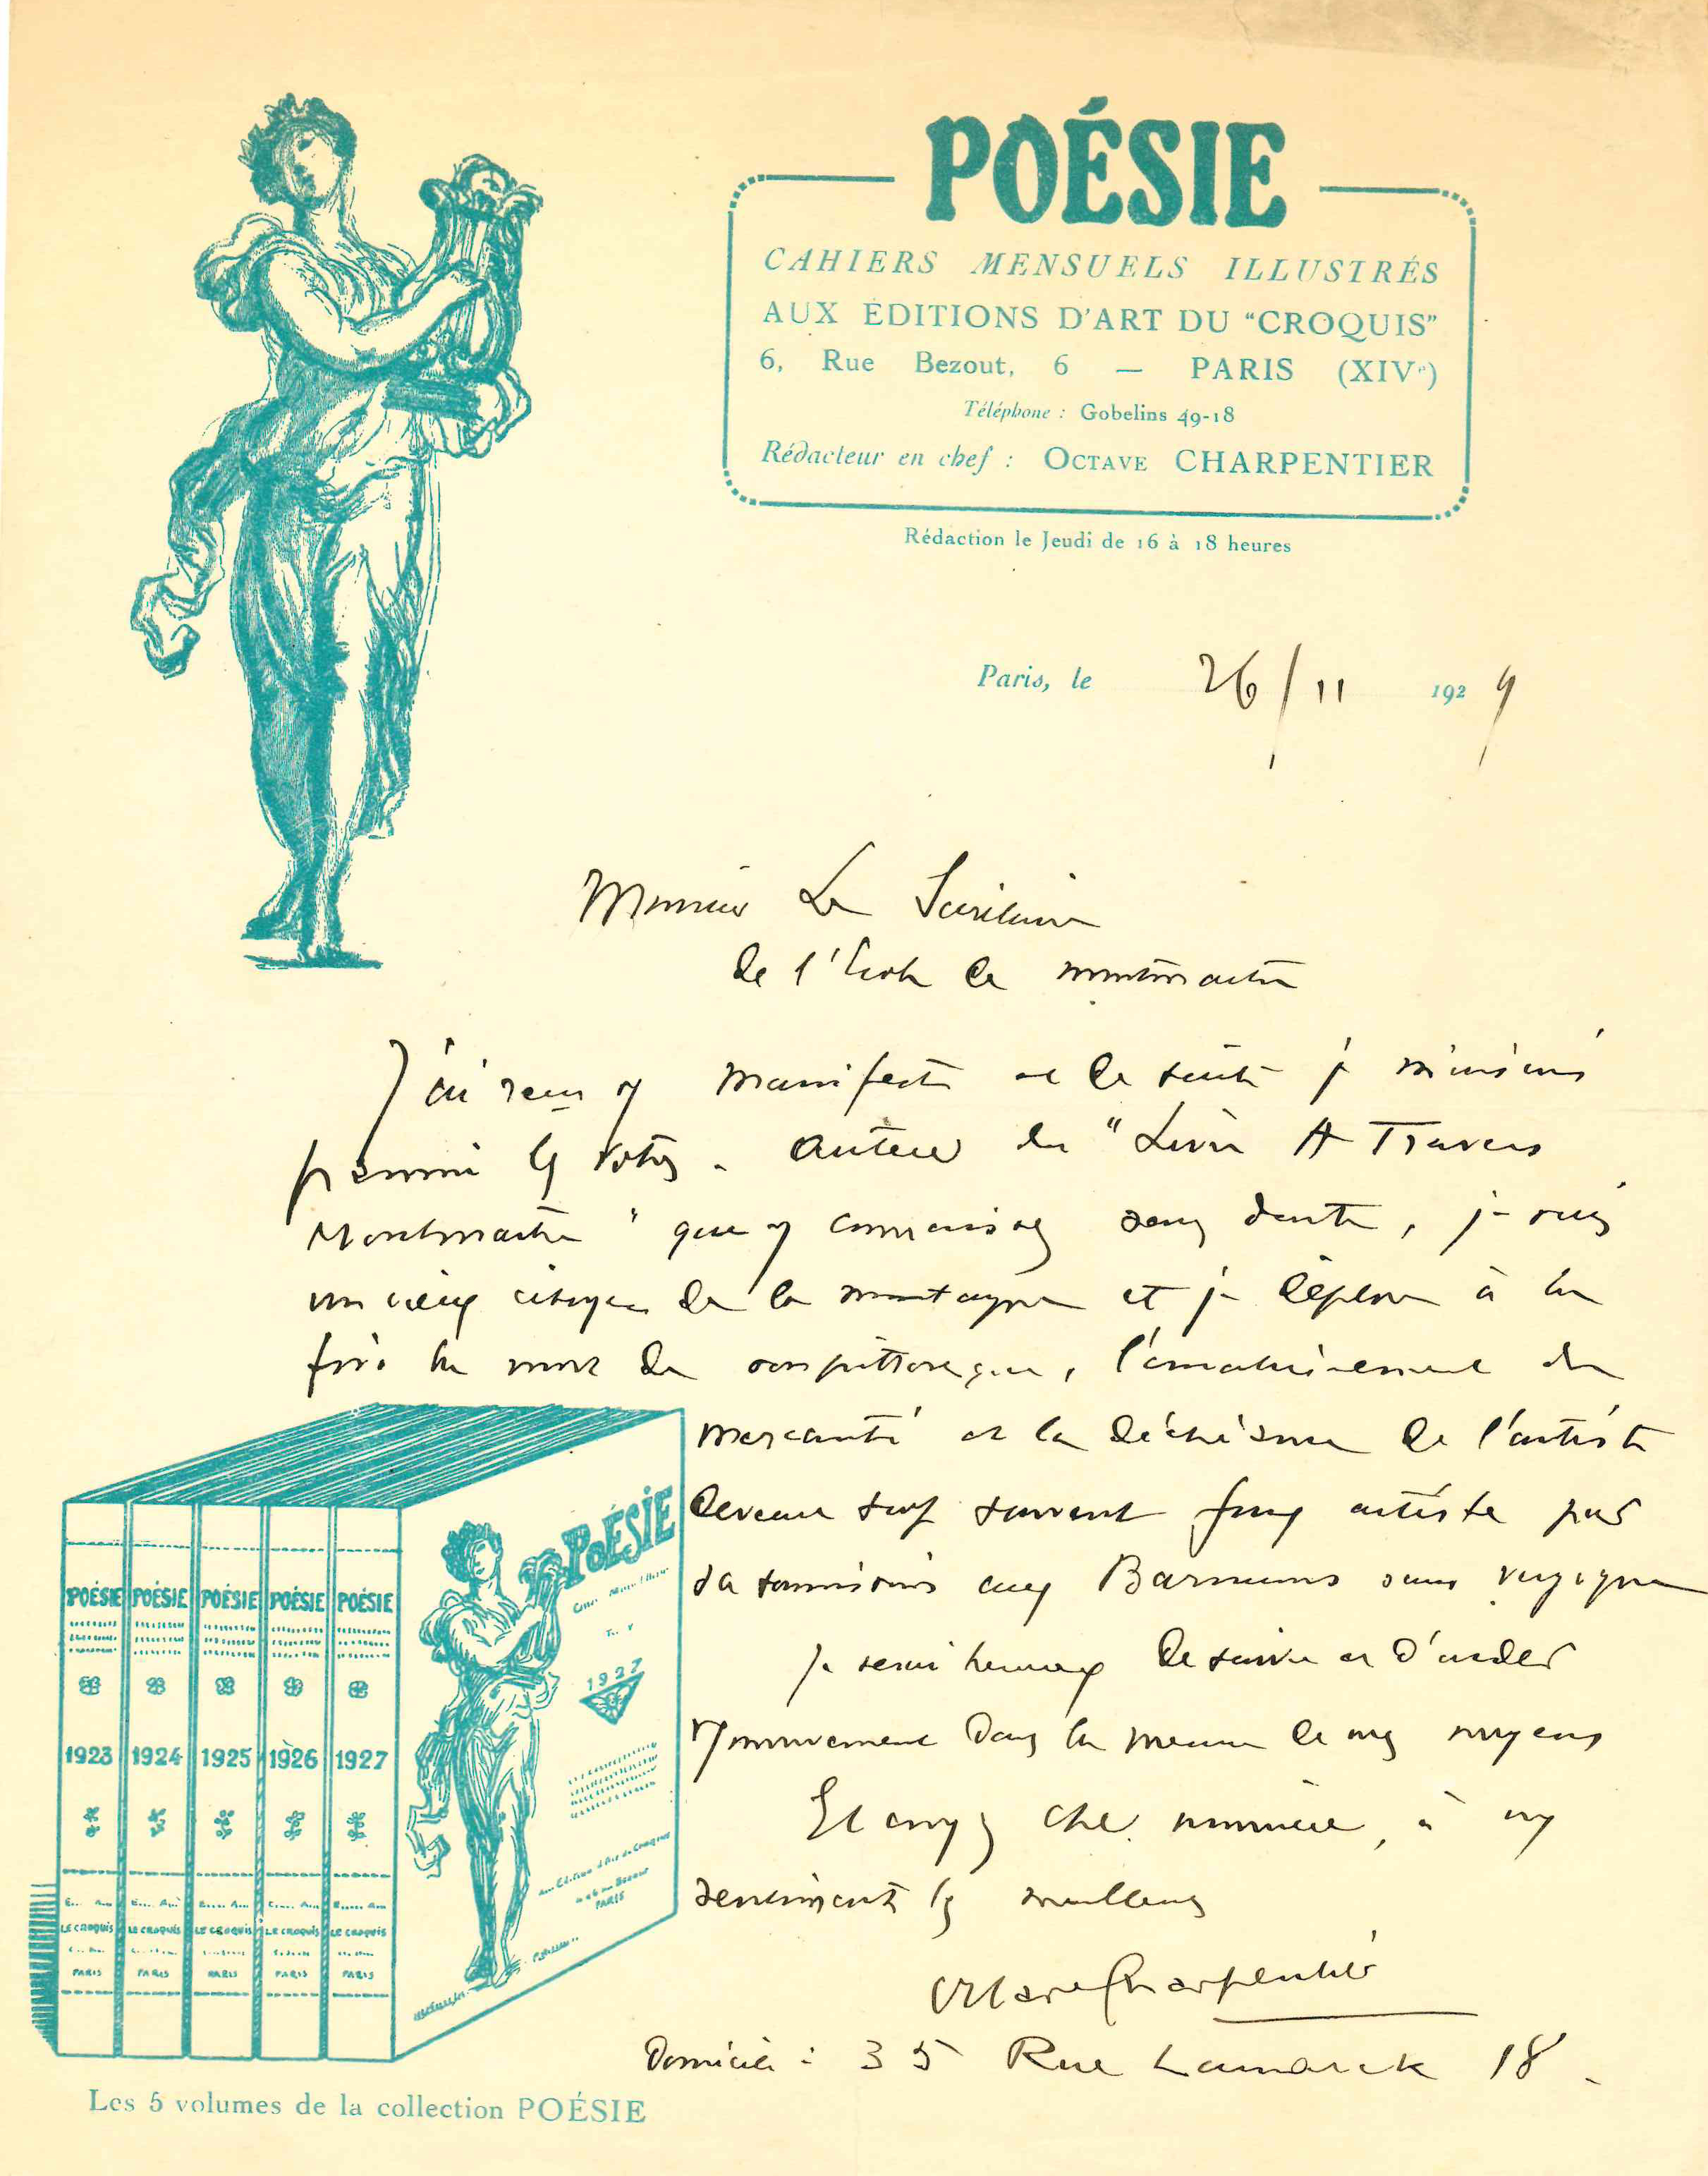 POÉSIE
CAHIERS MENSUELS ILLUSTRÉS
AUX ÉDITIONS D'ART DU “CROQUIS”
6, Rue Bezout, 6 — PARIS (XIVe)
Téléphone : Gobelins 49-18
Rédacteur en chef : OCTAVE CHARPENTIER
Rédaction le Jeudi de 16 à 18 heures
Paris, le 26/11 1929
Monsieur Le Secrétaire
de l'école de montmartre
J'ai reçu manifeste et de suite je m'inscris
parmi les vôtres. Auteur du "Livre A Travers
Montmartre" que connaissez sans doute, je suis
un vieux citoyen de la montagne et je déplore à la
fois la mort de son pittoresque, l'
mercanti et la déchéance de l'artiste
devenu trop souvent faux artiste par
sa soumission aux Barnums sans vergogne
Je serai heureux de suivre et d'aider
mouvement dans la mesure de mes moyens
Et croyez cher monsieur, à mes
sentiments les meilleurs
Octave Charpentier
Domicile : 35 Rue Lamarck 18.
POÉSIE POÉSIE POÉSIE POÉSIE POÉSIE
1923 1924 1925 1926 1927
LE CROQUIS LE CROQUIS LE CROQUIS LE CROQUIS LE CROQUIS
PARIS PARIS PARIS PARIS PARIS
POÉSIE
T. V
1927
PARIS
Les 5 volumes de la collection POÉSIE